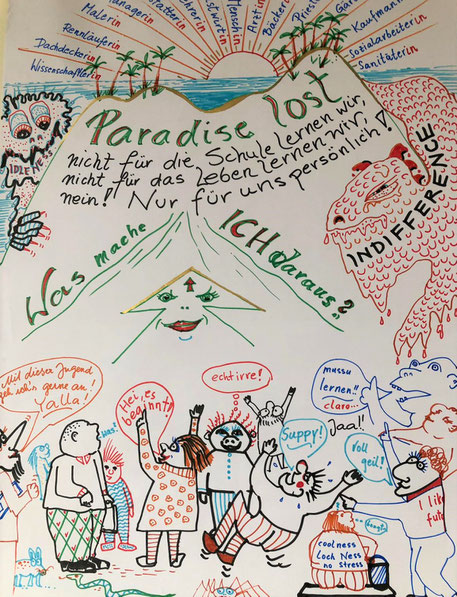 Wissenschaftlerin
Dachdeckerin
Rennläuferin
Malerin
Managerin
Menschin
Ärztin
Bäckerin
Priesterin
Kaufmann
Sozialarbeiterin
Sanitäterin
Paradise lost
nicht für die Schule lernen wir,
nicht für das Leben lernen wir,
nein! Nur für uns persönlich!
INDIFFERENCE
Was mache
ICH daraus?
Mit dieser Jugend
geh ich's gerne an!
Yalla!
was!
Hei, es
beginnt!
echt irre!
mussu
lernen!!
claro...
Jaa!!
Suppy!
voll
geil!
I like
coolness
Loch Ness
no stress